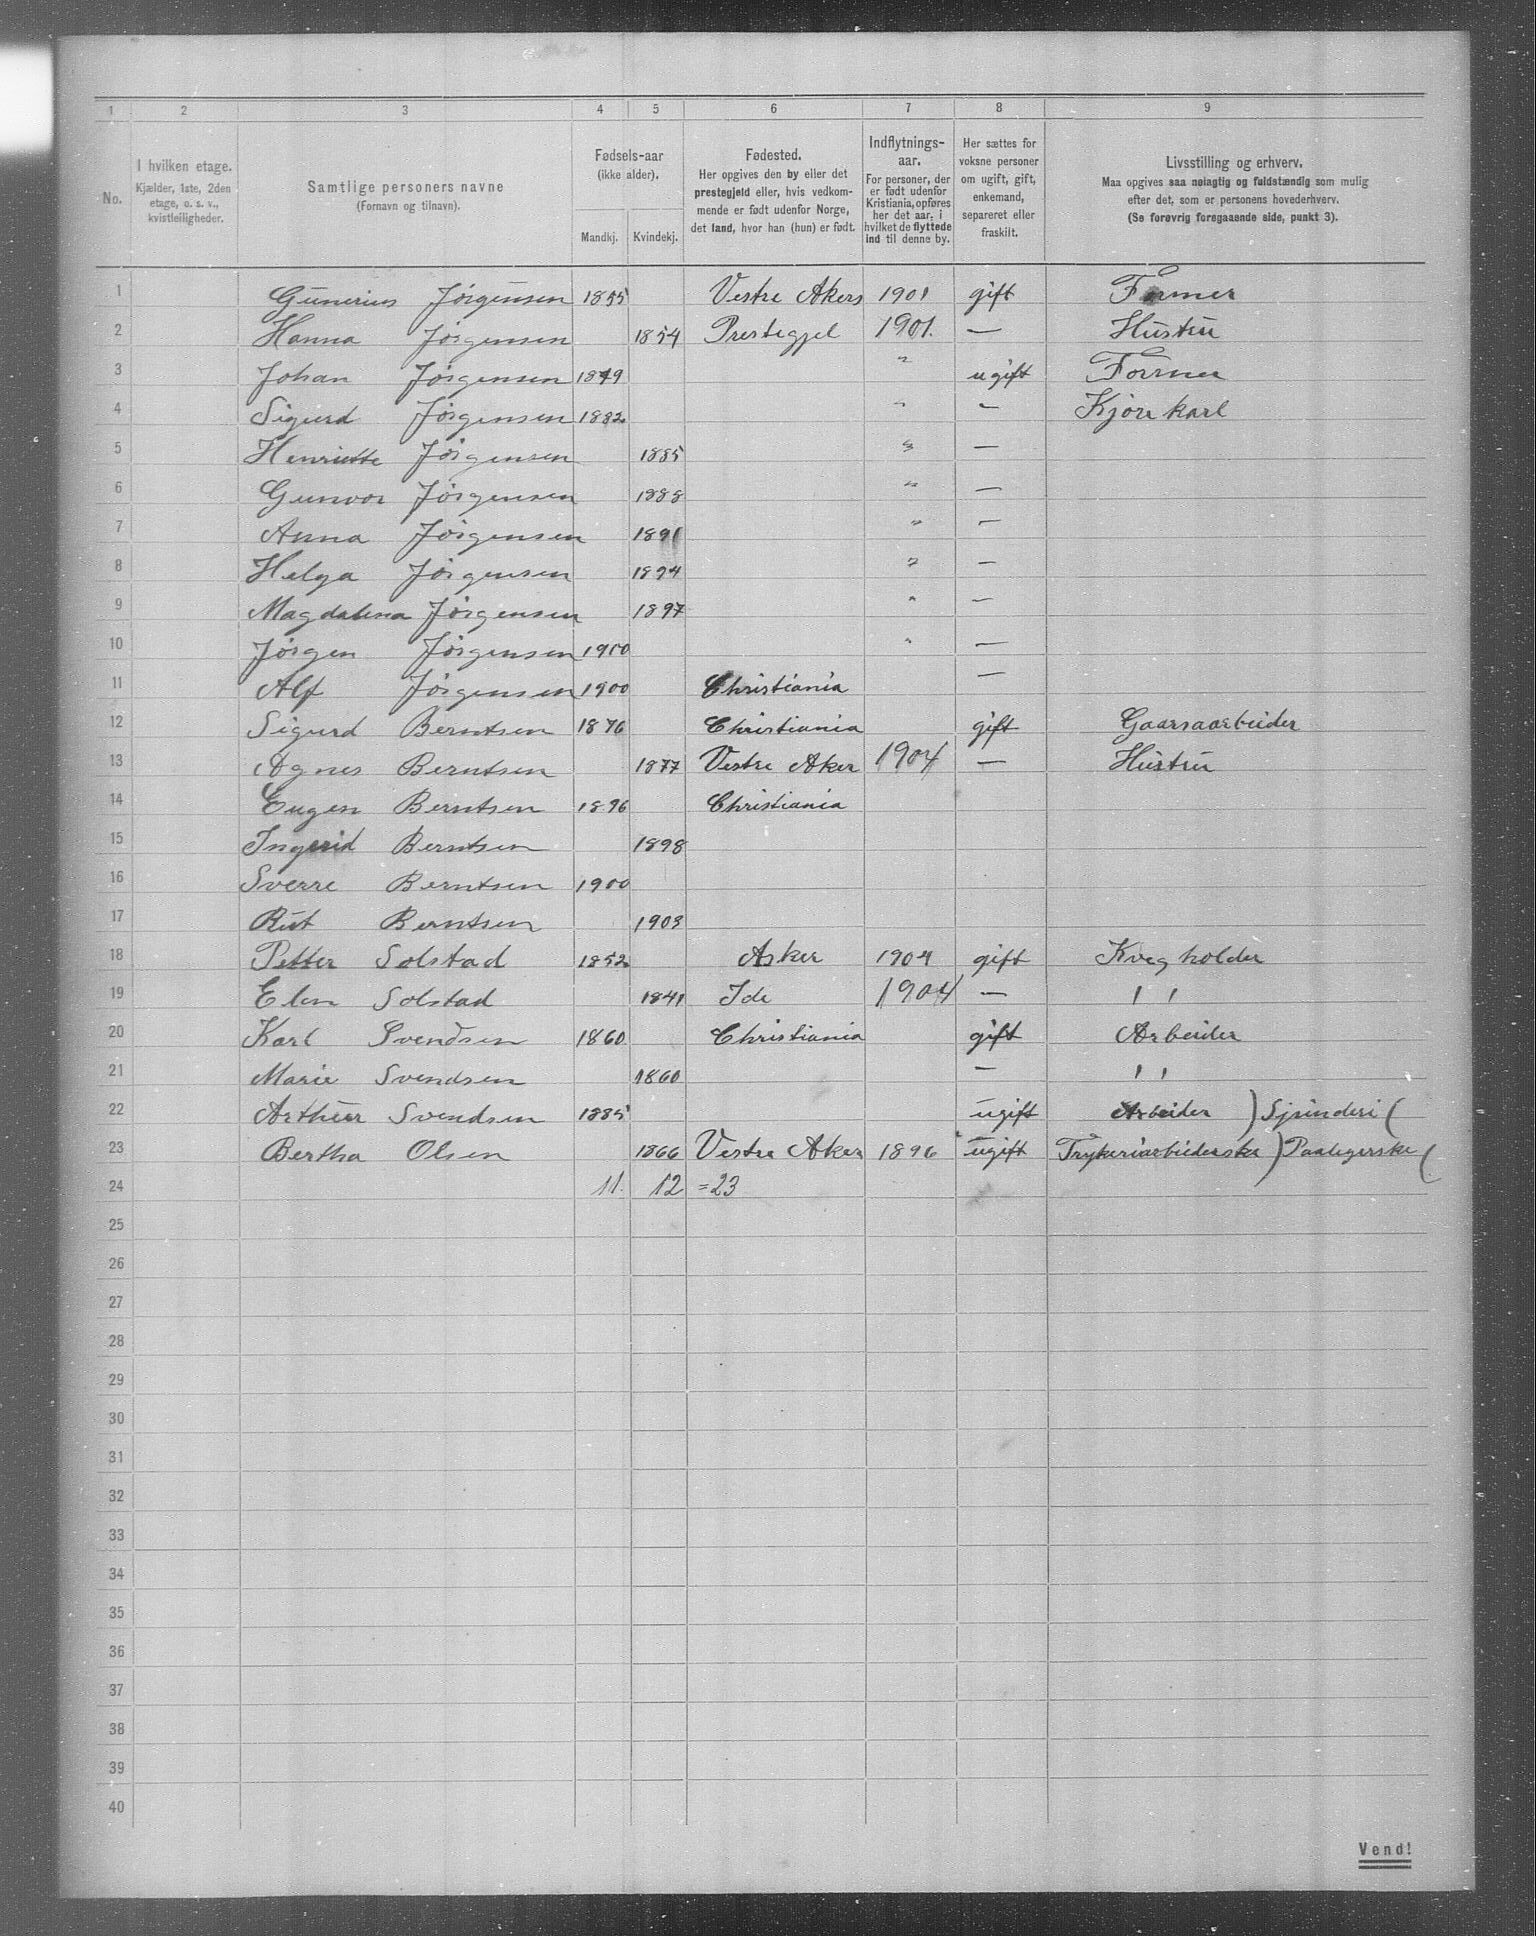 1 2 3 4 5 6 7 8 9
No.
I hvilken etage.
Kjælder, 1ste, 2den
etage, o. s. v.,
kvistleiligheder.
Samtlige personers navne
(Fornavn og tilnavn).
Fødsels-aar
(ikke alder).
Mandkj. Kvindekj.
Fødested.
Her opgives den by eller det
prestegjeld eller, hvis vedkom-
mende er født udenfor Norge,
det land, hvor han (hun) er født.
Indflytnings-
aar.
For personer, der
er født udenfor
Kristiania, opføres
her det aar, i
hvilket de flyttede
ind til denne by.
Her sættes for
voksne personer
om ugift, gift,
enkemand,
separeret eller
fraskilt.
Livsstilling og erhverv.
Maa opgives saa nøiagtig og fuldstændig som mulig
efter det, som er personens hovederhverv.
(Se forøvrig foregaaende side, punkt 3).
1 Gunerius Jørgensen 1855 Vestre Akers 1901 gift Former
2 Hanna Jørgensen 1854 Prestegjel 1901. — Hustru
3 Johan Jørgensen 1879 " ugift Former
4 Sigurd Jørgensen 1882 " — Kjøre karl
5 Henriette Jørgensen 1885 " —
6 Gunvor Jørgensen 1888 " —
7 Anna Jørgensen 1891 " —
8 Helga Jørgensen 1894 " —
9 Magdalena Jørgensen 1897 " —
10 Jørgen Jørgensen 1900 " —
11 Alf Jørgensen 1900 Christiania —
12 Sigurd Berntsen 1876 Christiania gift Gaarsaarbeider
13 Agnes Berntsen 1877 Vestre Aker 1904 — Hustru
14 Eugen Berntsen 1896 Christiania
15 Ingerid Berntsen 1898
16 Sverre Berntsen 1900
17 Rut Berntsen 1903
18 Petter Solstad 1852 Asker 1904 gift Kvegholder
19 Elen Solstad 1841 Ide 1904 — " "
20 Karl Svendsen 1860 Christiania gift Arbeider
21 Marie Svendsen 1860 — " "
22 Arthur Svendsen 1885 ugift Arbeider ) Spinderi (
23 Bertha Olsen 1866 Vestre Aker 1896 ugift Trykeriarbeiderske ) Paalegerske (
24 11. 12 =23
25
26
27
28
29
30
31
32
33
34
35
36
37
38
39
40
Vend!